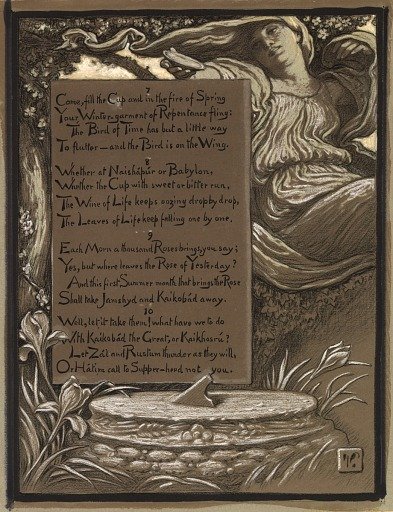 7
Come, fill the Cup and in the fire of Spring
Your Winter-garment of Repentance fling:
The Bird of Time has but a little way
To flutter — and the Bird is on the Wing.
8
Whether at Naishápúr or Babylon,
Whether the Cup with sweet or bitter run,
The Wine of Life keeps oozing drop by drop,
The Leaves of Life keep falling one by one.
9
Each Morn a thousand Roses brings, you say;
Yes, but where leaves the Rose of Yesterday?
And this first Summer month that brings the Rose
Shall take Jamshyd and Kaikobád away.
10
Well, let it take them! what have we to do
With Kaikobád the Great, or Kaikhosru?
Let Zál and Rustum thunder as they will,
Or Hátim call to Supper—heed not you.